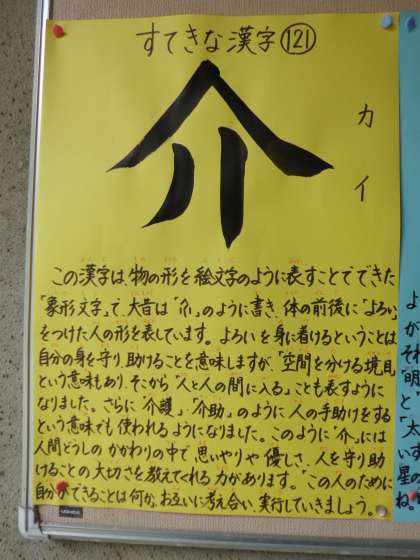 すてきな漢字 121
介
カイ
この漢字は、物の形を絵文字のように表すことでできた
「象形文字」で、大昔は「介」のように書き、体の前後に「よろい」
をつけた人の形を表しています。よろいを身に着けるということは
自分の身を守り、助けることを意味しますが、「空間を分ける境目」
という意味もあり、そこから「人と人の間に入る」ことも表すように
なりました。さらに「介護」・「介助」のように人の手助けをする
という意味でも使われるようになりました。このように「介」には
人間どうしのかかわりの中で思いやりや優しさ、人を守り助
けることの大切さを教えてくれる力があります。「この人のために
自分ができることは何か、お互いに考え合い、実行していきましょう。
よ
がそれ
「明
と
「太
いす
星の
ね。